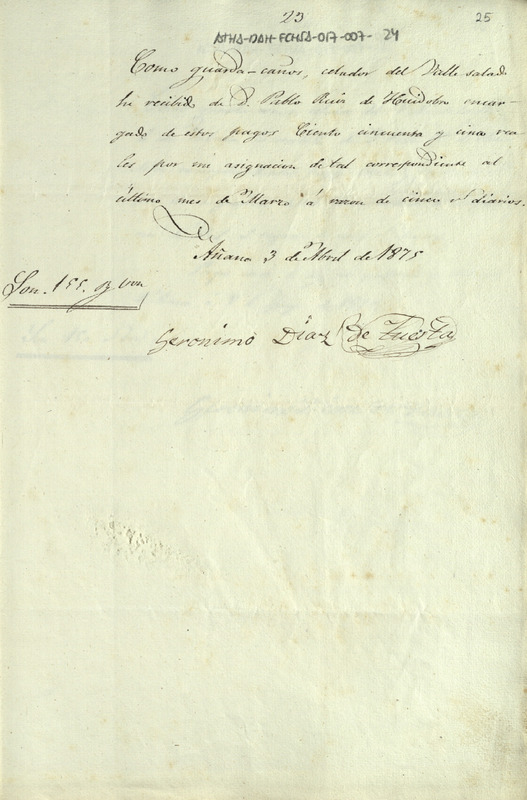 23
25
ATHA-DAH-FCHSA-017-007- 24
Como guarda-caños, celador del Valle-salado
he recibido de D. Pablo Ruiz de Huidobro encar-
gado de estos pagos Ciento cincuenta y cinco rea-
les por mi asignacion de tal correspondiente al
último mes de Marzo á razon de cinco rs diarios.
Añana 3 de Abril de 1875
Son. 155. rs. von
Geronimo Diaz de Tuesta